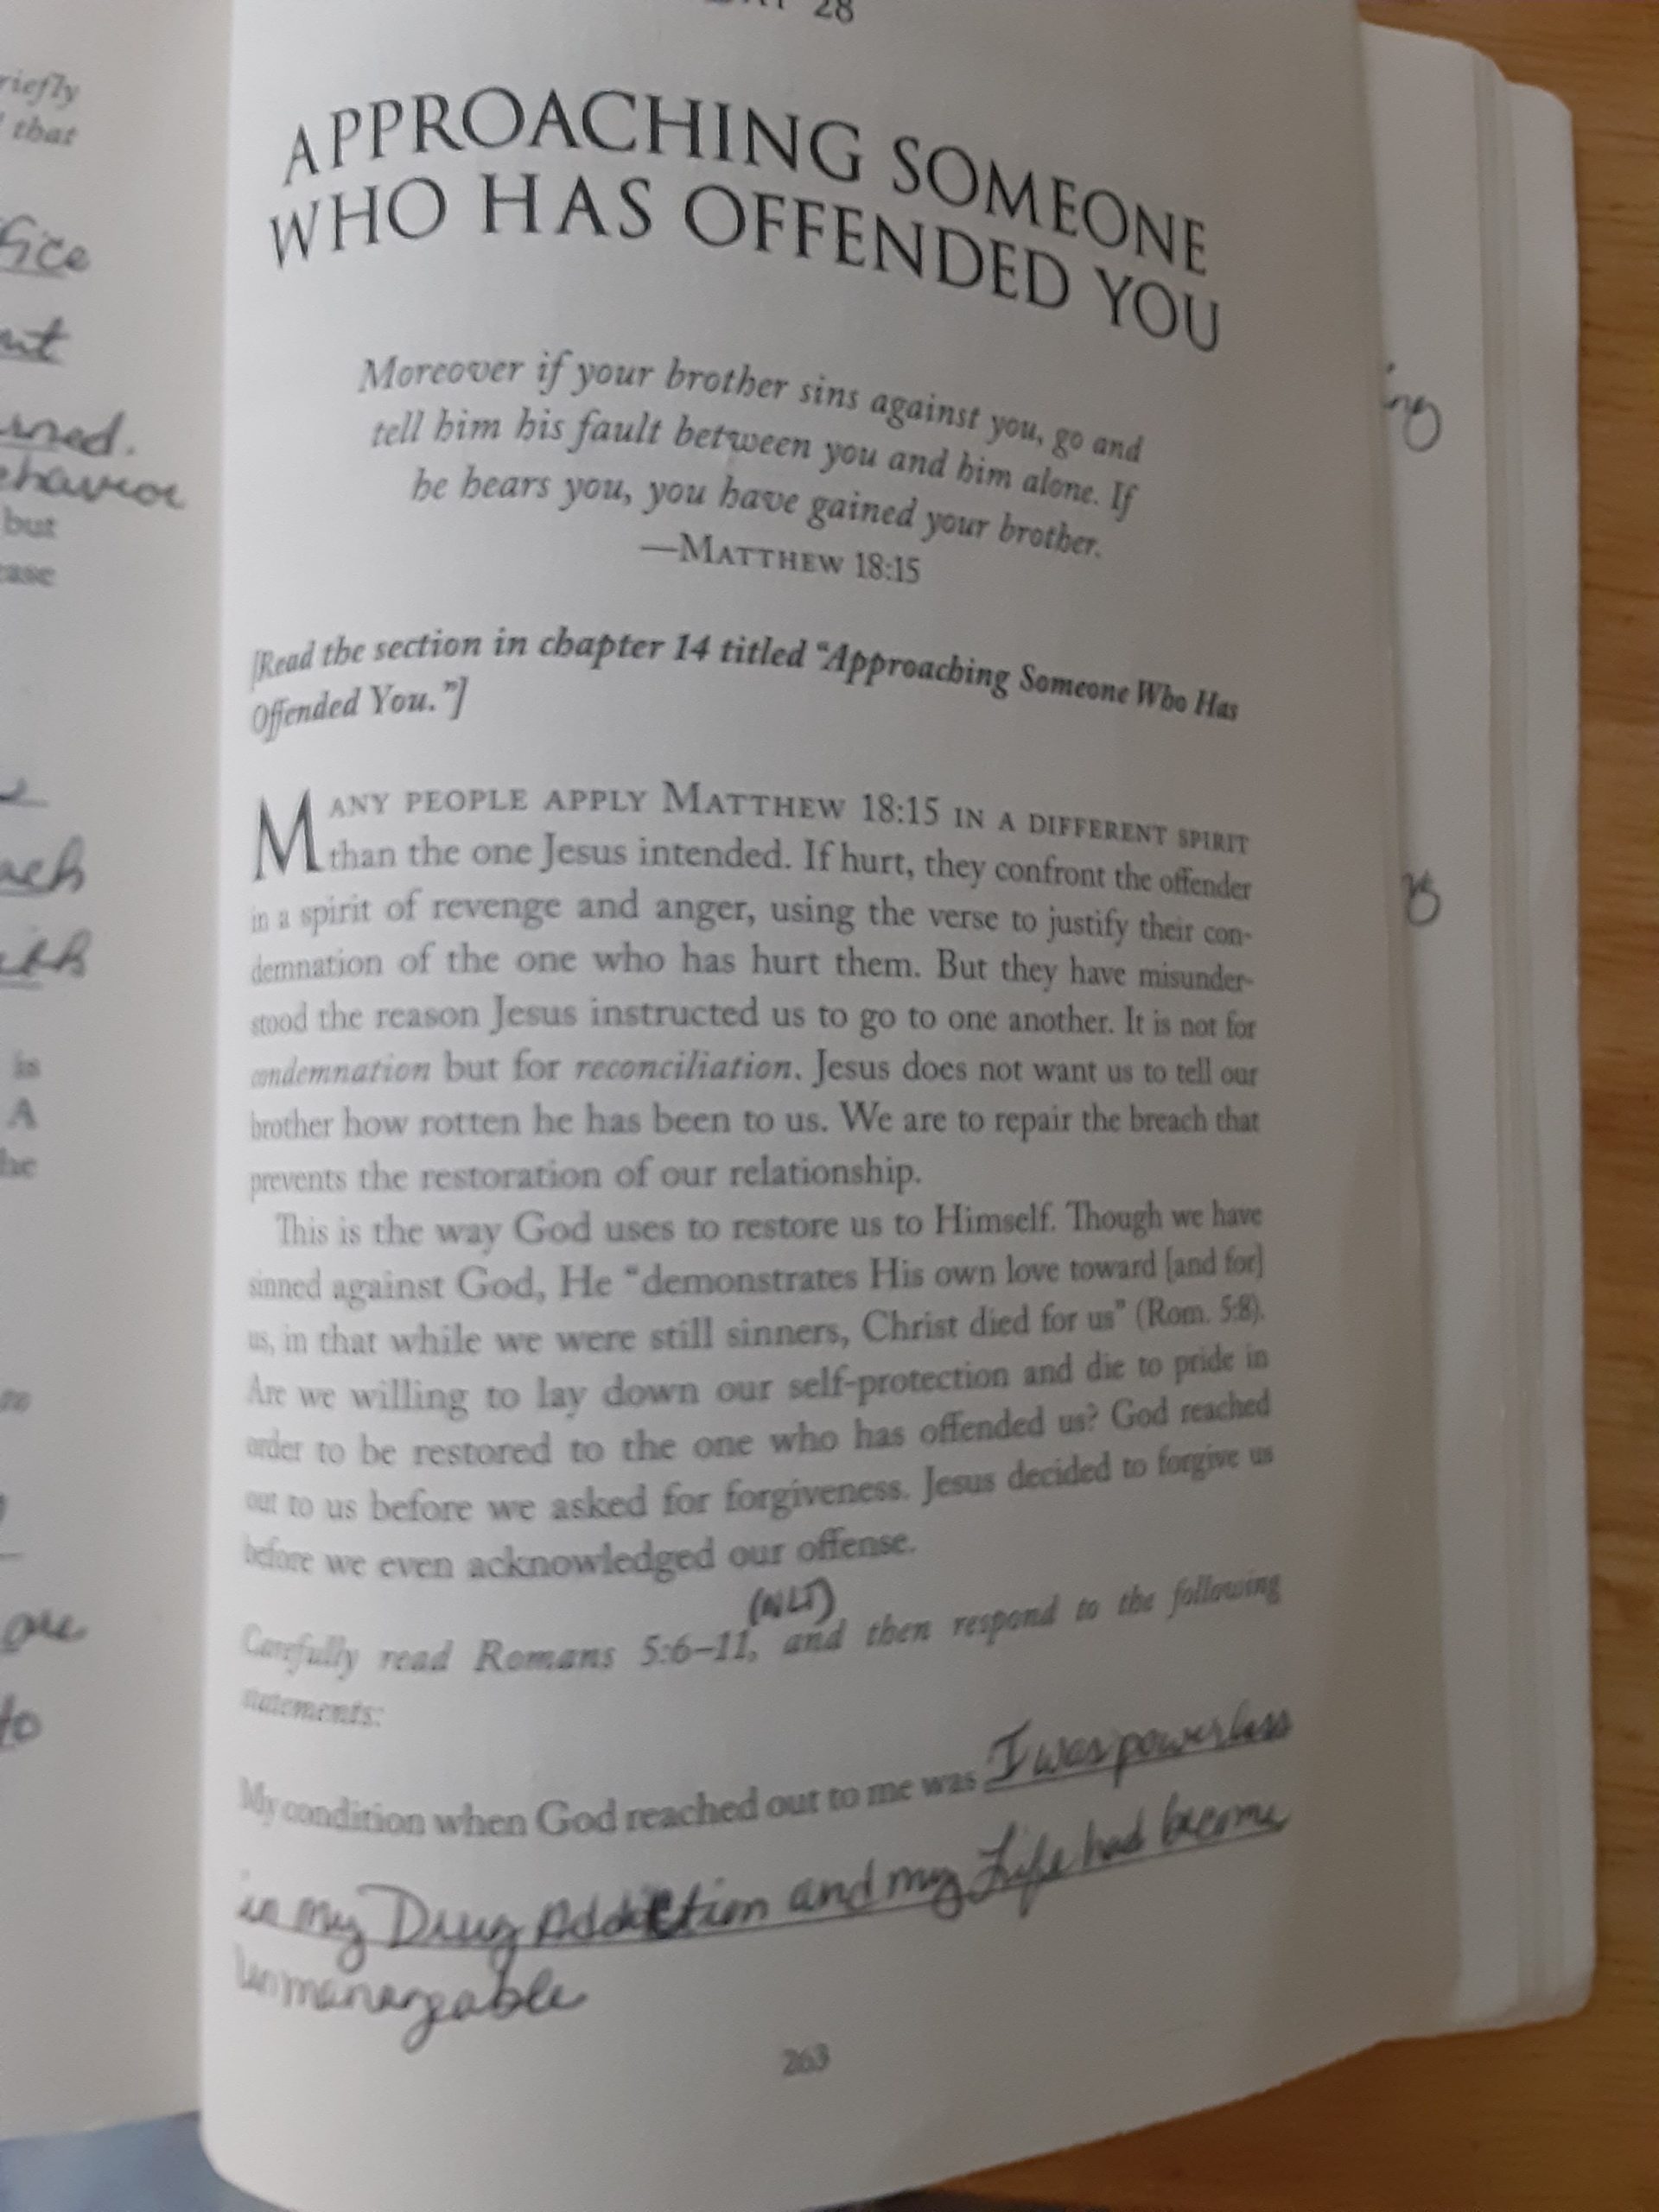 riefly
that
fice
but
ehavior
is
A
he
are
to
28
APPROACHING SOMEONE
WHO HAS OFFENDED YOU
Moreover if your brother sins against you, go and
tell him his fault between you and him alone. If
he hears you, you have gained your brother.
—MATTHEW 18:15
[Read the section in chapter 14 titled “Approaching Someone Who Has
Offended You.”]
MANY PEOPLE APPLY MATTHEW 18:15 IN A DIFFERENT SPIRIT
than the one Jesus intended. If hurt, they confront the offender
in a spirit of revenge and anger, using the verse to justify their con-
demnation of the one who has hurt them. But they have misunder-
stood the reason Jesus instructed us to go to one another. It is not for
condemnation but for reconciliation. Jesus does not want us to tell our
brother how rotten he has been to us. We are to repair the breach that
prevents the restoration of our relationship.
This is the way God uses to restore us to Himself. Though we have
sinned against God, He “demonstrates His own love toward [and for]
us, in that while we were still sinners, Christ died for us” (Rom. 5:8).
Are we willing to lay down our self-protection and die to pride in
order to be restored to the one who has offended us? God reached
out to us before we asked for forgiveness. Jesus decided to forgive us
before we even acknowledged our offense.
(NLT)
Carefully read Romans 5:6–11, and then respond to the following
statements:
My condition when God reached out to me was I was powerless
in my Drug Addiction and my Life had become
unmanageable
263